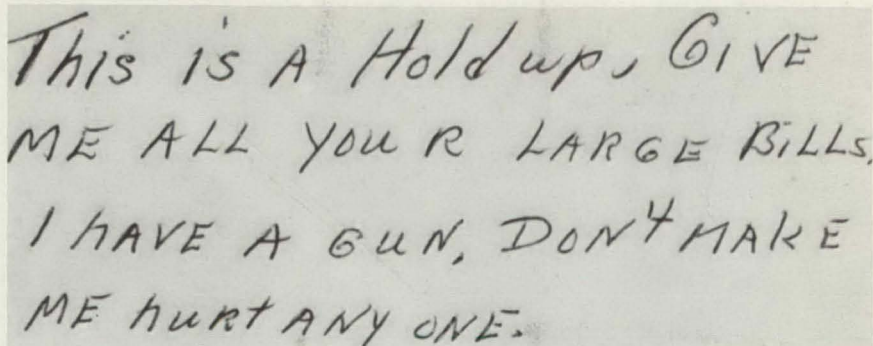 This is A Hold up, GIVE
ME ALL YOUR LARGE BiLLS.
I hAVE A GUN. DON't MAKE
ME hurt ANY ONE.